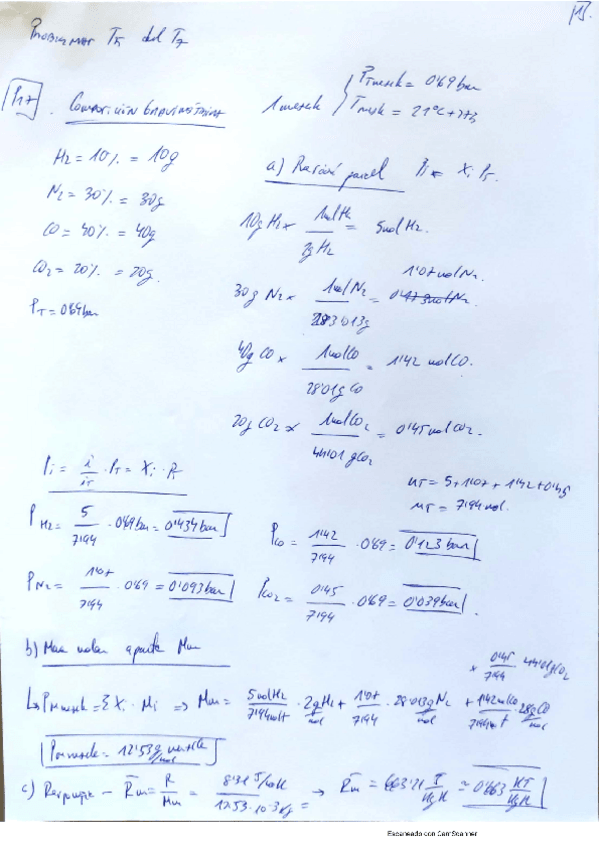 115.
Problemas T5 del T7
P17. Composición Gravimétrica
1 mezcla { PTmezcla = 0'69 bar
Tmezcla = 21°C + 273
H2 = 10% = 10g
N2 = 30% = 30g
CO = 40% = 40g
CO2 = 20% = 20g.
PT = 0'69 bar
a) Presión parcial Pi = Xi PT.
10g H2 × 1molH2 / 2g H2 = 5mol H2.
30g N2 × 1mol N2 / 28'013g = 1'07mol N2.
40g CO × 1molCO / 28'01g CO = 1'42 molCO.
20g CO2 × 1molCO2 / 44'01 gCO2 = 0'45 molCO2.
nT = 5+1'07+1'42+0'45
nT = 7'94 mol.
Pi = i / iT · PT = Xi · PT
PH2 = 5 / 7'94 · 0'69 bar = 0'434 bar
PCO = 1'42 / 7'94 · 0'69 = 0'123 bar
PN2 = 1'07 / 7'94 · 0'69 = 0'093 bar
PCO2 = 0'45 / 7'94 · 0'69 = 0'039 bar.
b) Masa molar aparente Mm
+ 0'45 / 7'94 44'01 gCO2
↳ PMmezcla = Σ Xi · Mi ⇒ Mm = 5molH2 / 7'94molt · 2gH2/mol + 1'07 / 7'94 · 28'013gN2/mol + 1'42molCO / 7'94molt · 28gCO/mol
PMmezcla = 12'53 g mezcla/mol
c) Rm = R / Mm = 8'31 J/molK / 12'53·10-3 kg → Rm = 663'21 J/kgK = 0'663 KJ/kgK
Escaneado con CamScanner